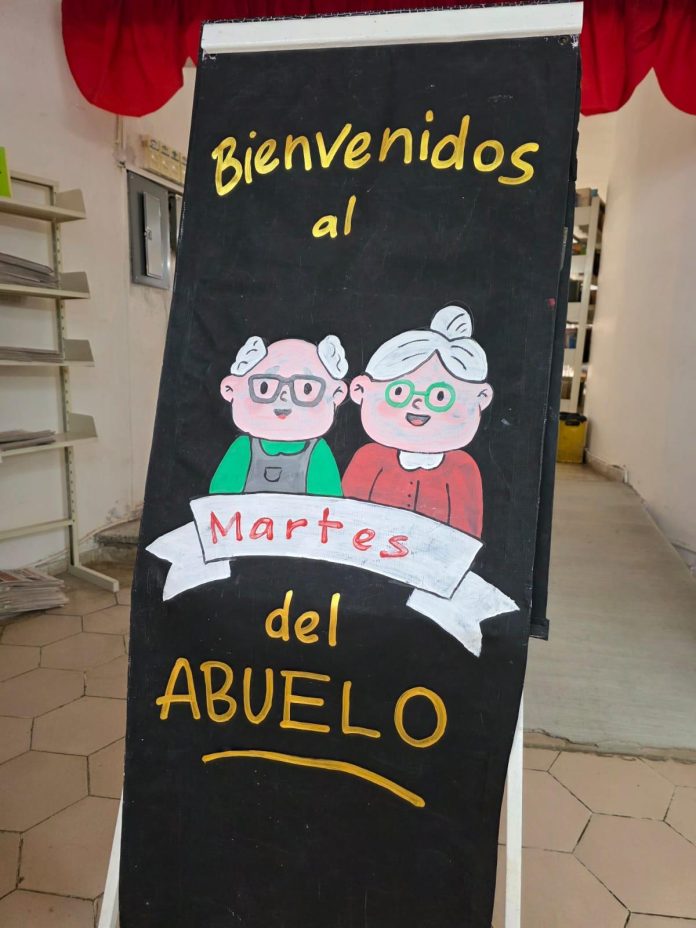 Bienvenidos
al
Martes
del
ABUELO